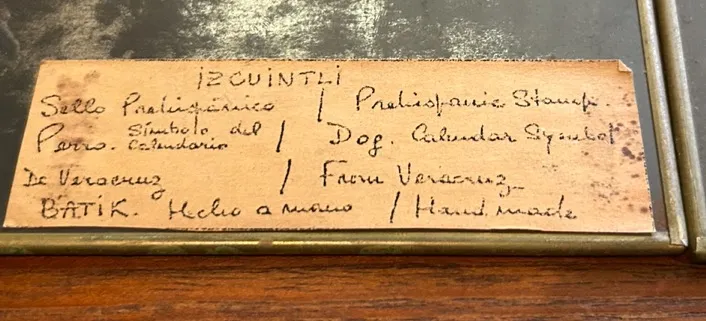 IZCUINTLI
Sello Prehispánico / Prehispanic Stamp.
Perro. Símbolo del Calendario / Dog. Calendar Symbol
De Veracruz / From Veracruz
BATIK. Hecho a mano / Hand made